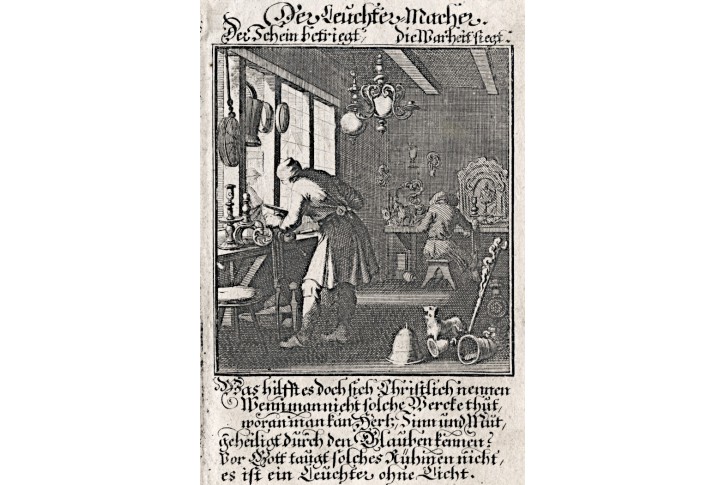 Der Leuchter-Macher.
Der Schein betriegt, die Warheit siegt.
Was hilfft es doch sich Christlich nennen
Wenn man nicht solche Wercke thut,
woran man kan Hertz, Sinn und Mut,
geheiligt durch den Glauben kennen?
vor Gott taugt solches Rühmen nicht,
es ist ein Leuchter ohne Licht.